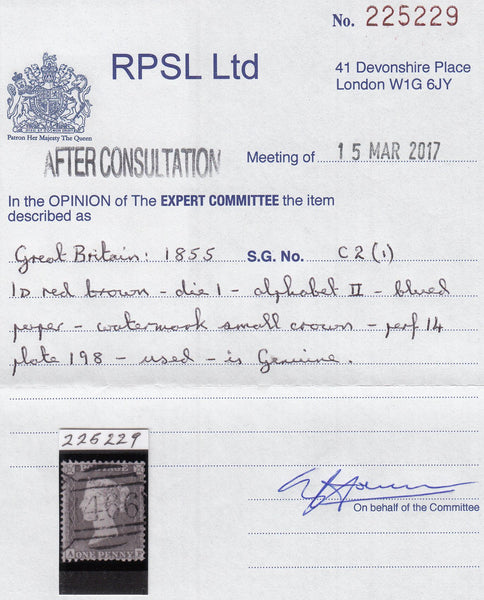 No. 225229
RPSL Ltd
41 Devonshire Place
London W1G 6JY
Patron Her Majesty The Queen
AFTER CONSULTATION
Meeting of 15 MAR 2017
In the OPINION of The EXPERT COMMITTEE the item
described as
Great Britain: 1855 S.G. No. C2(1)
1D red brown - die 1 - alphabet II - blued
paper - watermark small crown - perf 14
plate 198 - used - is Genuine.
225229
POSTAGE
466
A
ONE PENNY
On behalf of the Committee